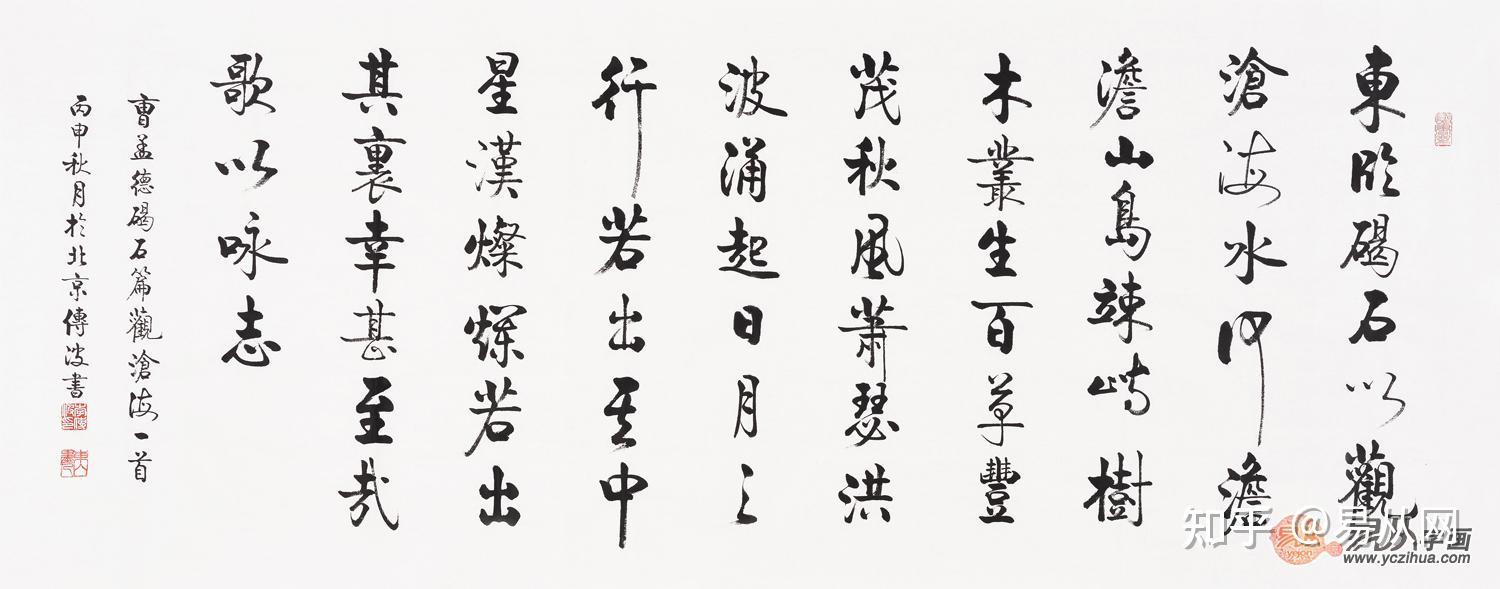 東臨碣石以觀
滄海水何澹
澹山島竦峙樹
木叢生百草豐
茂秋風蕭瑟洪
波涌起日月之
行若出其中
星漢燦爛若出
其裏幸甚至哉
歌以咏志
曹孟德碣石篇觀滄海一首
丙申秋月於北京傳波書
知乎 @易从网
易从字画
www.yczihua.com